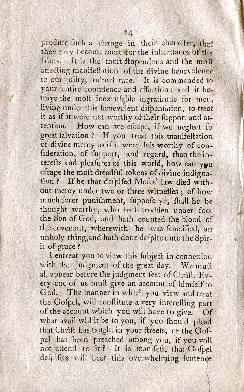 24
produce such a change in their character, that
they may become meet for the inheritance of the
saints. It is the most stupendous and the most
affecting manifestation of the divine benevolence
to our guilty, ruined race. It is commended to
your entire confidence and affection: and it be-
trays the most inexcusable ingratitude for you,
living under this benevolent dispensation, to treat
it as if it were not worthy of their support and at-
tention. How can we escape, if we neglect so
great salvation? If you treat this manifestation
of divine mercy as if it were less worthy of con-
sideration, of support, and regard, than the in-
terests and pleasures of this world, how can you
escape the most dreadful tokens of divine indigna-
tion? If he that despised Moses' law died with-
out mercy under two or three witnesses; of how
much sorer punishment, suppose ye, shall he be
thought worthy, who hath trodden under foot
the Son of God, and hath counted the blood of
the covenant, wherewith he was sanctified, an
unholy thing, and hath done despite unto the Spir-
it of grace?
I entreat you to view this subject in connexion
with the judgment of the great day. We must
all appear before the judgment seat of Christ. Ev-
ery one of us must give an account of himself to
God. The manner in which you view and treat
the Gospel, will constitute a very interesting part
of the account which you will have to give. Of
what avail will it be to you, if you should plead
that Christ has taught in your streets, or the Gos-
pel has been preached among you, if you will
not attend to it? It is manifest, that Gospel
despisers will hear this overwhelming sentence